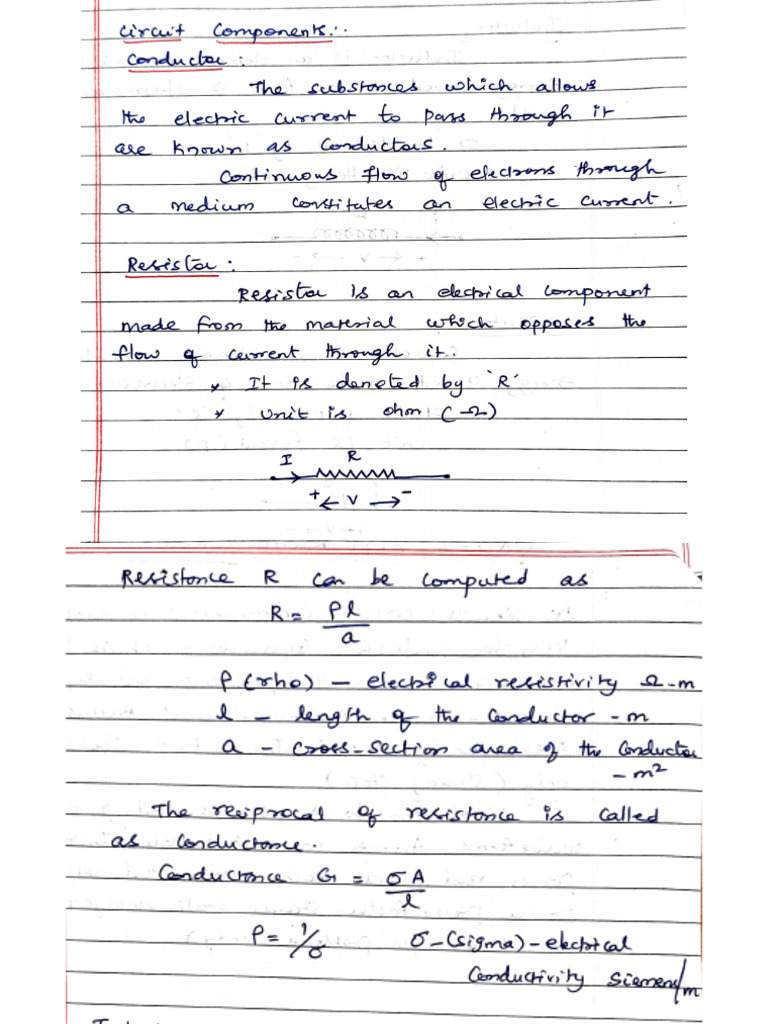 Circuit Components:
Conductor:
The substances which allows
the electric current to pass through it
are known as conductors.
Continuous flow of electrons through
a medium constitutes an electric current.
Resistor:
Resistor is an electrical component
made from the material which opposes the
flow of current through it.
* It is denoted by 'R'
* Unit is ohm (Ω)
I R
+ ← V → -
Resistance R can be computed as
R = ρl/a
ρ (rho) - electrical resistivity Ω-m
l - length of the conductor - m
a - cross-section area of the conductor
- m²
The reciprocal of resistance is called
as conductance.
Conductance G = σA/l
ρ = 1/σ σ-(sigma)-electrical
Conductivity Siemens/m